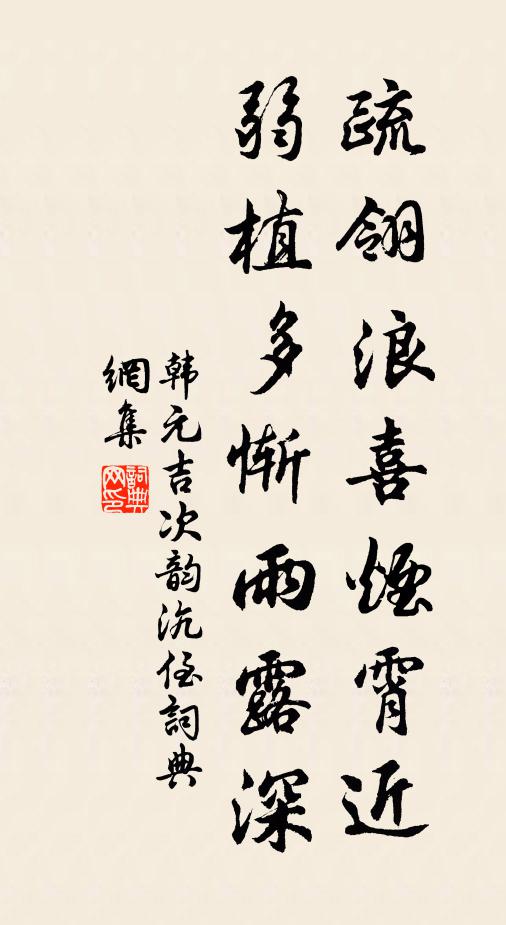 疏翎浪喜煙霄近
弱植多慚雨露深
韩元吉次韵沆侄詞典
網集
詞典網印